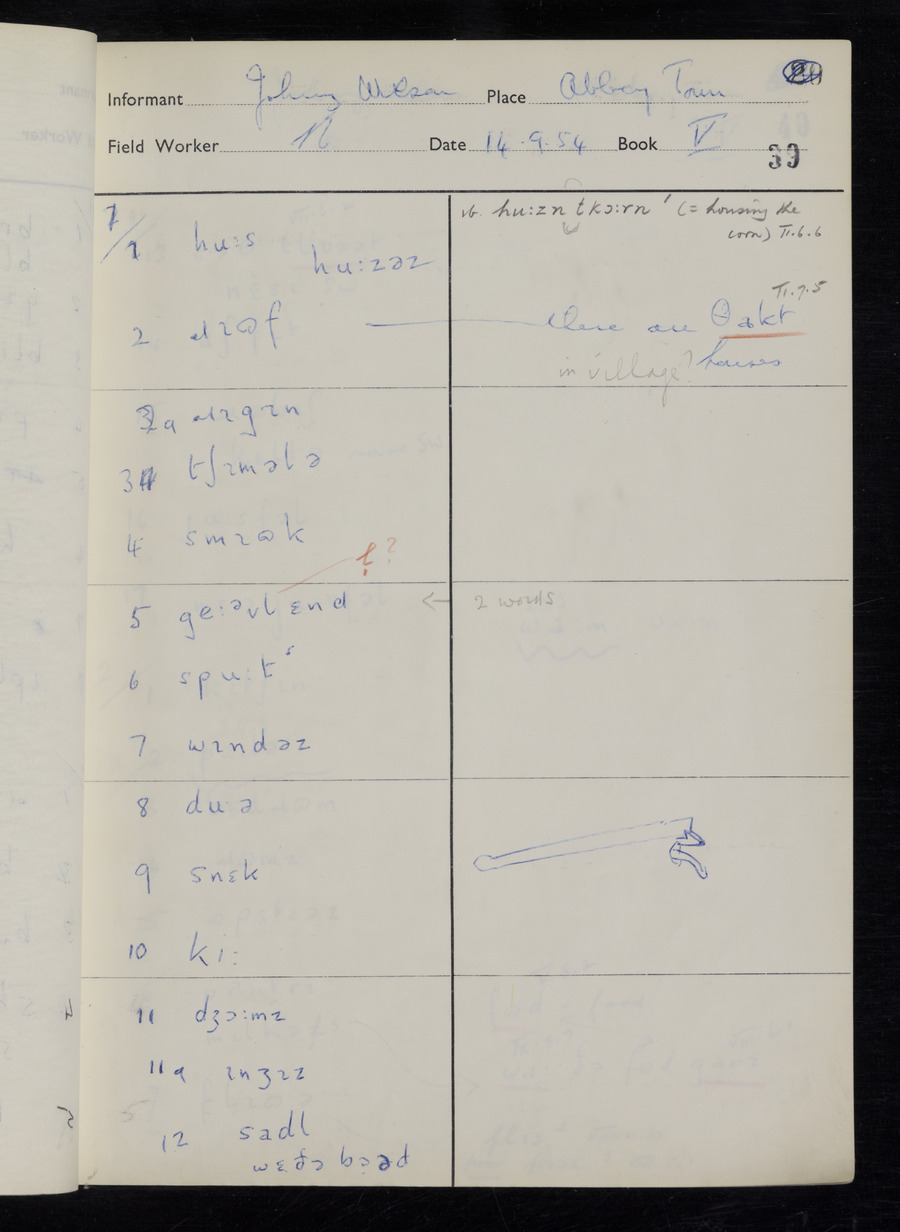 Informant Johnny Wilson Place Abbey Town
Field Worker N Date 14.9.54 Book V
39
1/1 hu:s
hu:zəz
vb. hu:zn tkɔ:rn (= housing the
corn) II.6.6
2 ɹɷf
there are θakt II.7.5
in village? houses
3a
3 tʃɪmələ
4 smɪɷk
ɫ?
5 ge:əvl ɛnd
← 2 words
6 spu:tˢ
7 wɪndəz
8 duə
9 snɛk
10 kɪ:
11 dʒɔ:mz
11a ɪnʒɪz
12 sadl